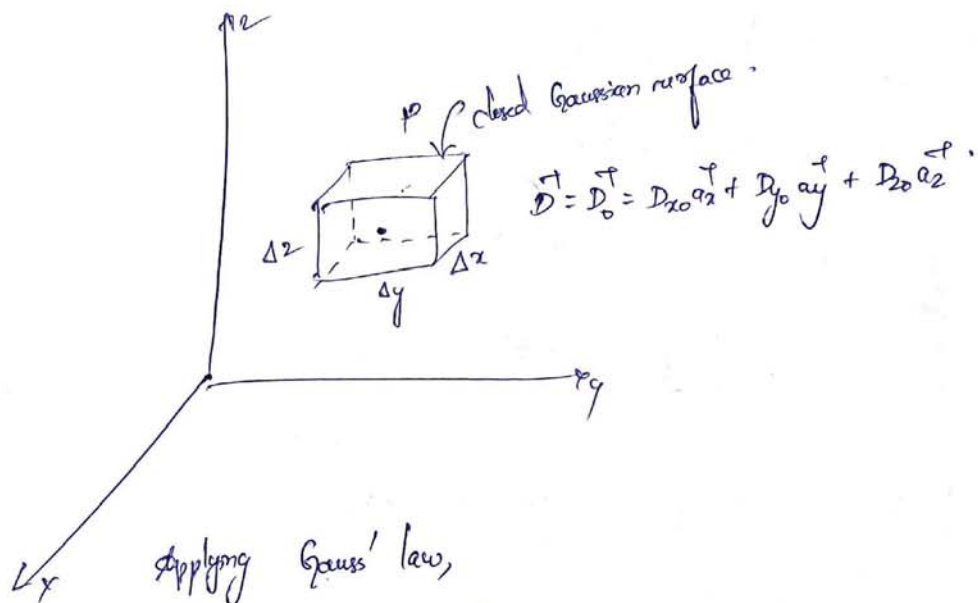 z
P
closed Gaussian surface.
D⃗ = D⃗₀ = Dx₀ a⃗x + Dy₀ a⃗y + Dz₀ a⃗z.
Δz
Δx
Δy
y
x
Applying Gauss' law,